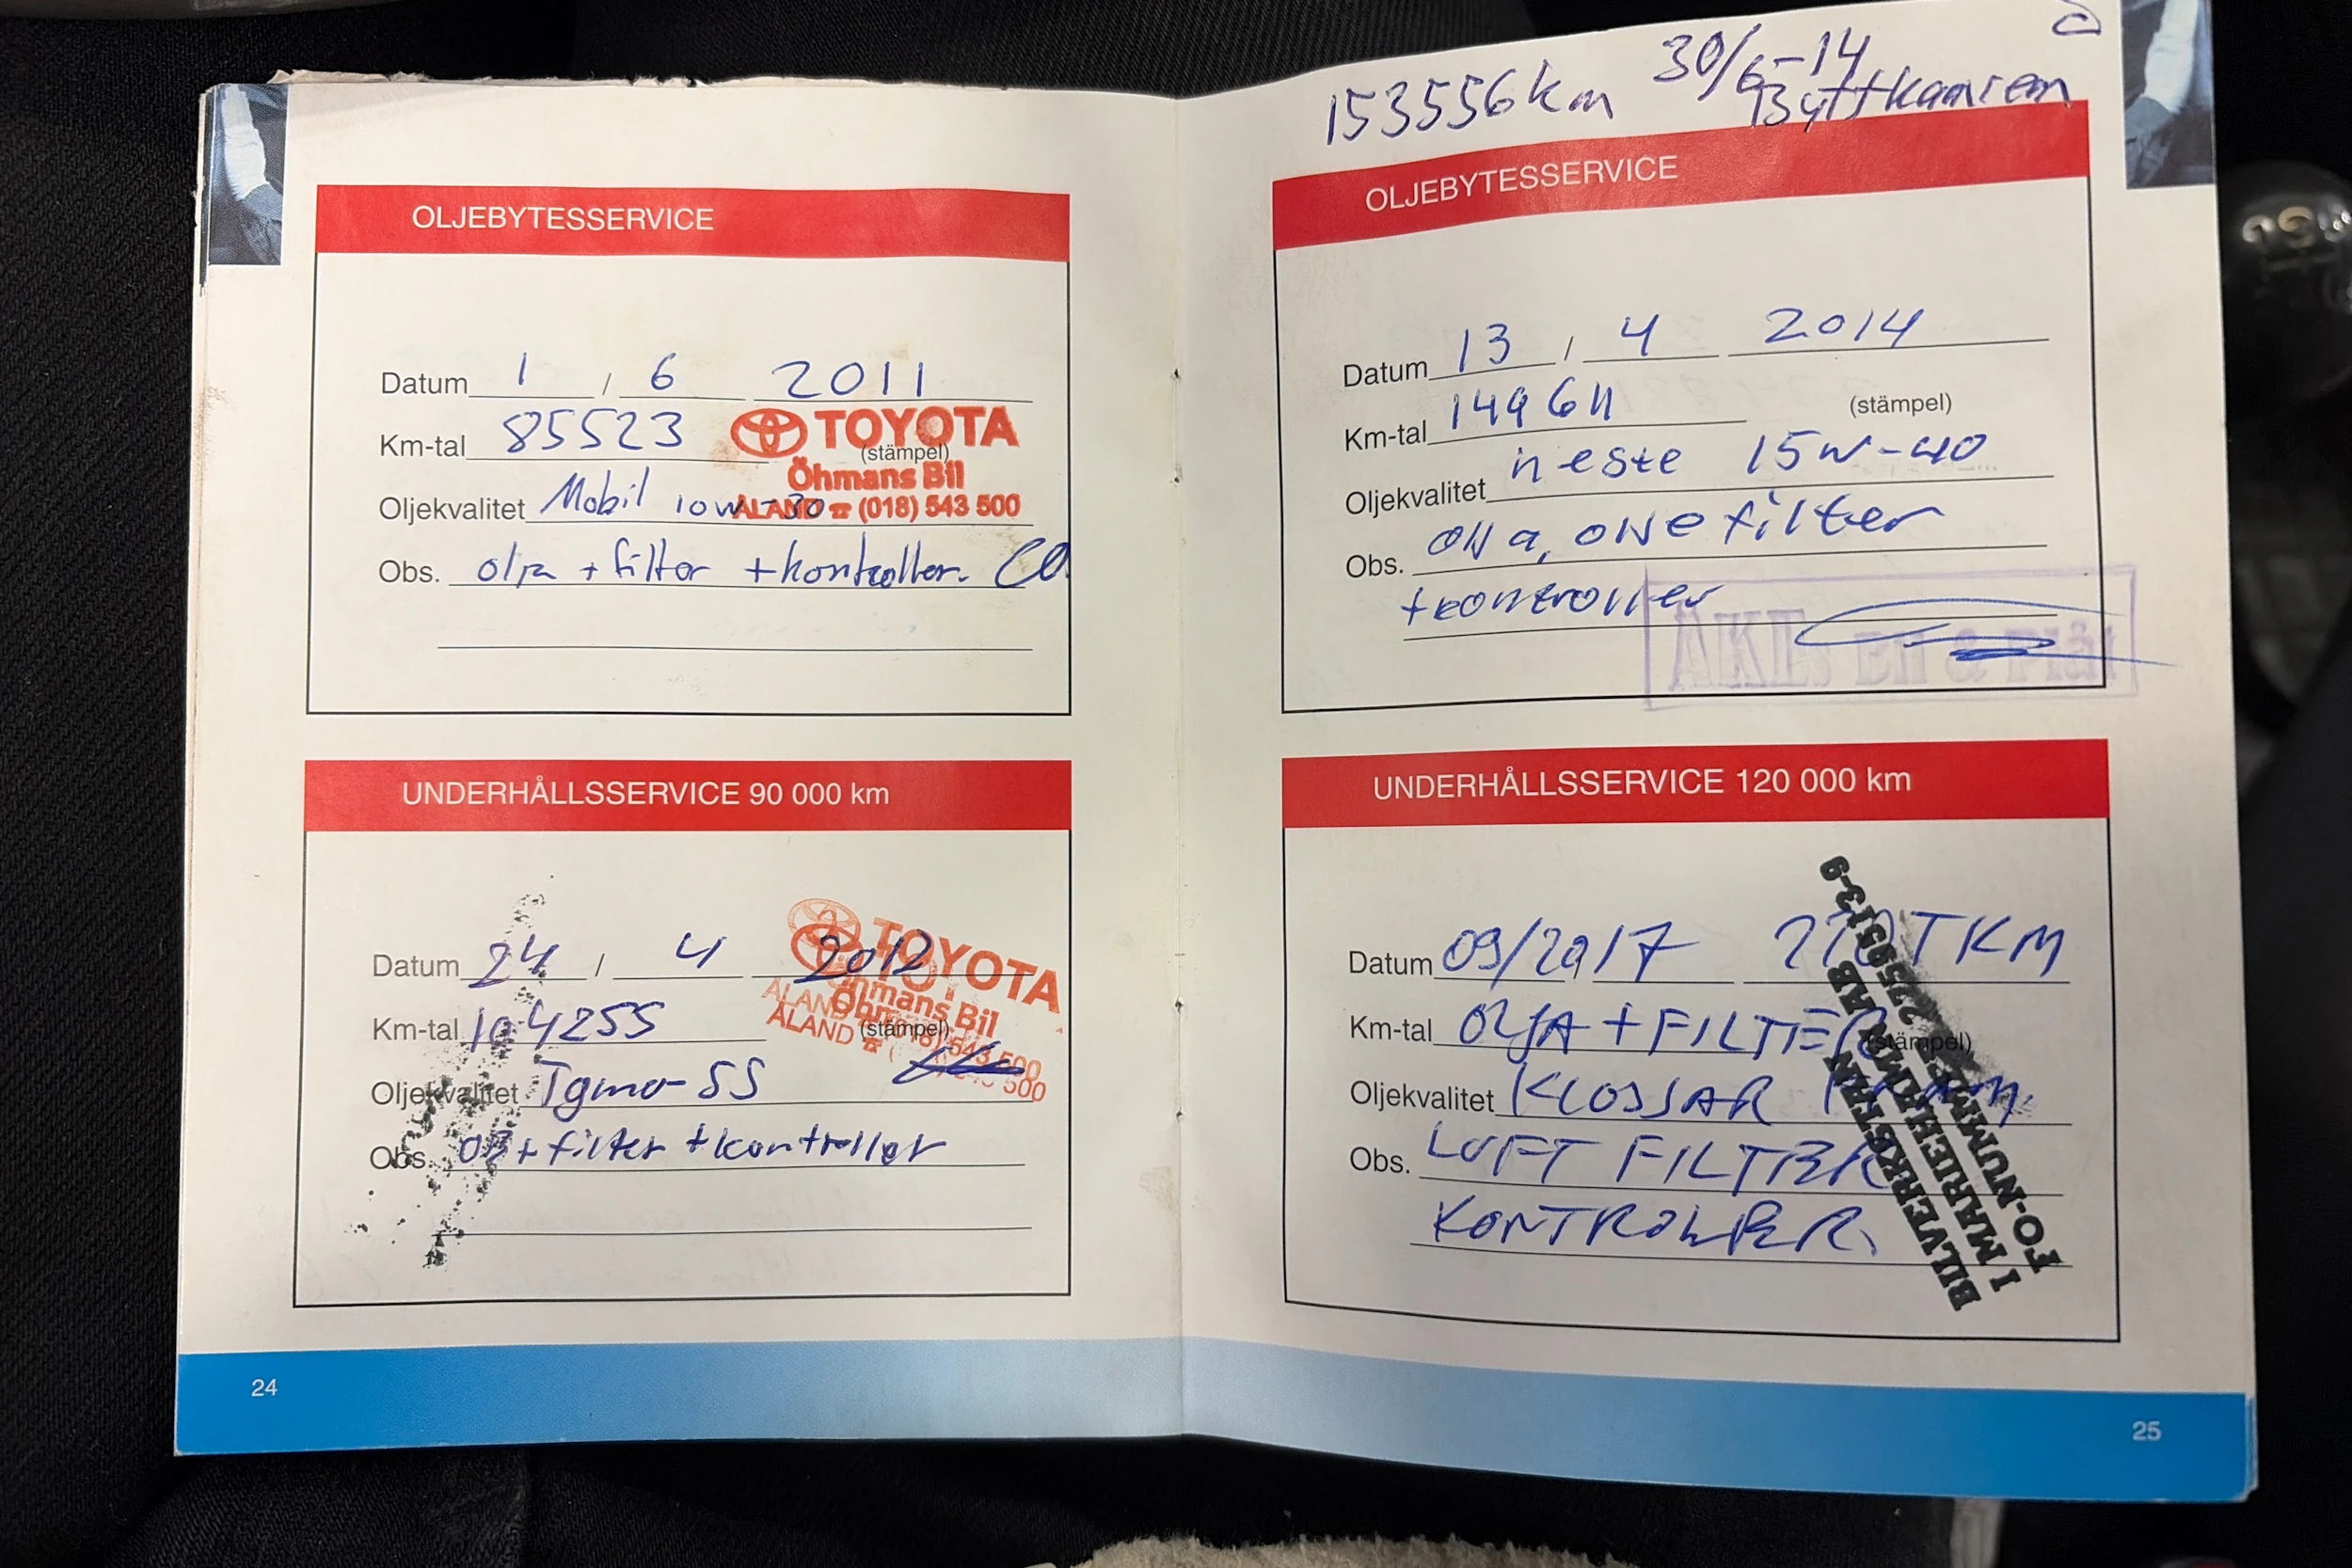 OLJEBYTESSERVICE
Datum 1 / 6 2011
Km-tal 85523
TOYOTA
(stämpel)
Öhmans Bil
Oljekvalitet Mobil 10w-30
ÅLAND ☎ (018) 543 500
Obs. olja + filter + kontroller.
UNDERHÅLLSSERVICE 90 000 km
Datum 24 / 4 2012
TOYOTA
Öhmans Bil
Km-tal 104255
(stämpel)
ÅLAND ☎ (018) 543 500
Oljekvalitet Tgmo-SS
Obs. + filter + kontroller
24
153556 km 30/6-14
Bytt kamrem
OLJEBYTESSERVICE
Datum 13 / 4 2014
Km-tal 149611
(stämpel)
Oljekvalitet neste 15w-40
Obs. olja, olje filter
+ kontroller
ÅKEs Bil & Plåt
UNDERHÅLLSSERVICE 120 000 km
Datum 09/2017 TKM
Km-tal OLJA + FILTER
(stämpel)
Oljekvalitet KLOSSAR
Obs. LUFT FILTER
KONTROLLER.
BILVERKSTAN
I MARIEHAMN AB
FO-NUMMER 2259513-9
25